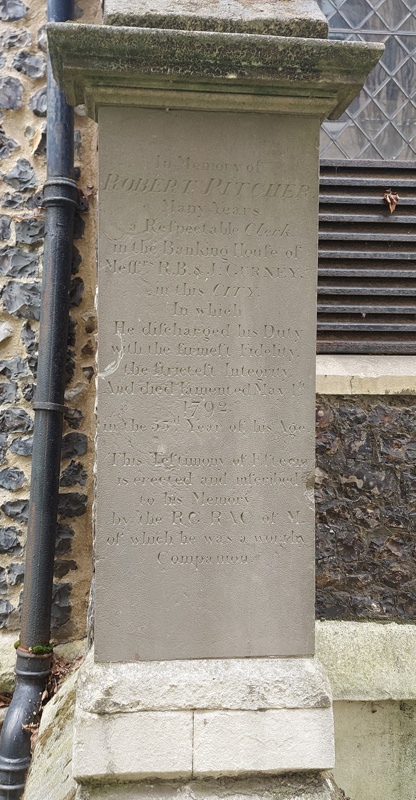 In Memory of
ROBERT PITCHER
Many Years
a Reſpectable Clerk
in the Banking Houſe of
Meſſrs R.B. & J. GURNEY,
in this CITY.
In which
He diſcharged his Duty
with the firmeſt Fidelity,
the ſtricteſt Integrity
And died lamented May
1792.
in the Year of his Age
This Teſtimony of Eſteem
is erected and inſcribed
to his Memory
by the RG RAC of M.
of which he was a worthy
Companion